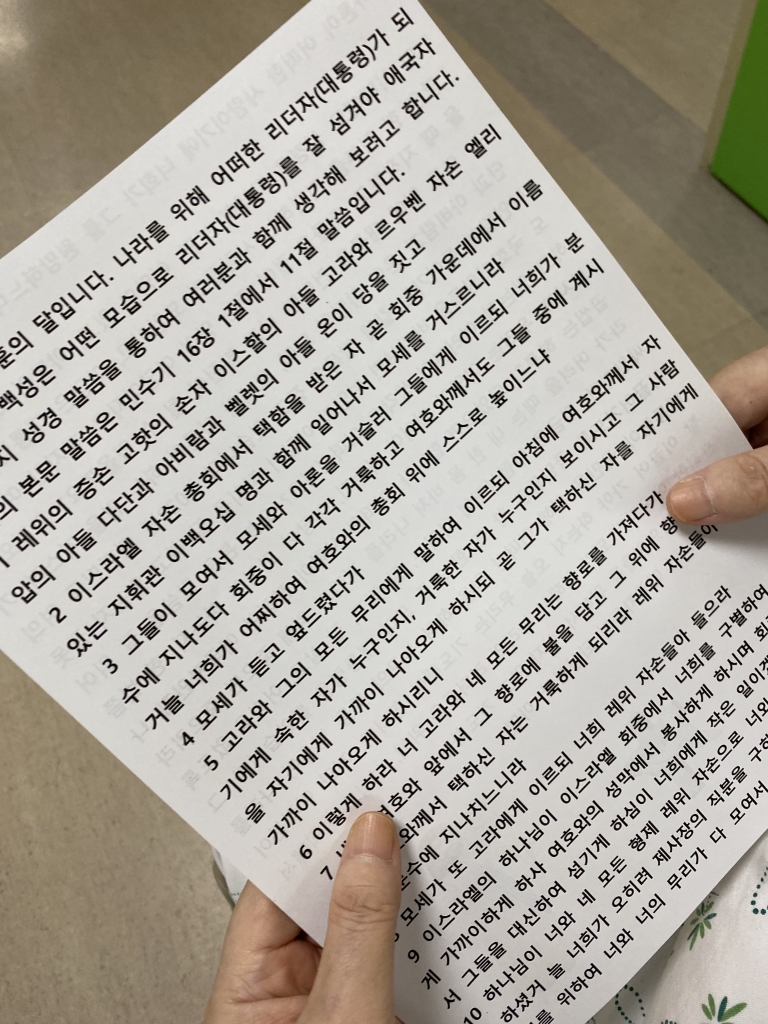 훈의 달입니다. 나라를 위해 어떠한 리더자(대통령)가 되
백성은 어떤 모습으로 리더자(대통령)를 잘 섬겨야 애국자
지 성경 말씀을 통하여 여러분과 함께 생각해 보려고 합니다.
의 본문 말씀은 민수기 16장 1절에서 11절 말씀입니다.
1 레위의 증손 고핫의 손자 이스할의 아들 고라와 르우벤 자손 엘리
압의 아들 다단과 아비람과 벨렛의 아들 온이 당을 짓고
2 이스라엘 자손 총회에서 택함을 받은 자 곧 회중 가운데에서 이름
있는 지휘관 이백오십 명과 함께 일어나서 모세를 거스르니라
3 그들이 모여서 모세와 아론을 거슬러 그들에게 이르되 너희가 분
수에 지나도다 회중이 다 각각 거룩하고 여호와께서도 그들 중에 계시
거늘 너희가 어찌하여 여호와의 총회 위에 스스로 높이느냐
4 모세가 듣고 엎드렸다가
5 고라와 그의 모든 무리에게 말하여 이르되 아침에 여호와께서 자
기에게 속한 자가 누구인지, 거룩한 자가 누구인지 보이시고 그 사람
을 자기에게 가까이 나아오게 하시되 곧 그가 택하신 자를 자기에게
가까이 나아오게 하시리니
6 이렇게 하라 너 고라와 네 모든 무리는 향로를 가져다가
7 여호와 앞에서 그 향로에 불을 담고 그 위에 향
와께서 택하신 자는 거룩하게 되리라 레위 자손들아
분수에 지나치느니라
모세가 또 고라에게 이르되 너희 레위 자손들아 들으라
9 이스라엘의 하나님이 이스라엘 회중에서 너희를 구별하여
게 가까이하게 하사 여호와의 성막에서 봉사하게 하시며 회
서 그들을 대신하여 섬기게 하심이 너희에게 작은 일이겠
10 하나님이 너와 네 모든 형제 레위 자손으로 너와
하셨거 늘 너희가 오히려 제사장의 직분을 구하
를 위하여 너와 너의 무리가 다 모여서